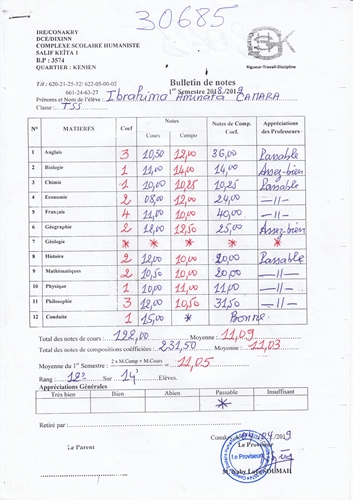 30685
IRE/CONAKRY
DCE/DIXINN
COMPLEXE SCOLAIRE HUMANISTE
SALIF KEÏTA 1
B.P : 3574
QUARTIER : KENIEN
Rigueur-Travail-Discipline
Tél : 620-21-25-52/ 622-05-00-02
661-24-63-27
Bulletin de notes
1er Semestre 2018/2019
Prénoms et Nom de l'élève : Ibrahima Aminata CAMARA
Classe : TSS
N° MATIERES Coef Notes Notes de Comp. Coef. Appréciations des Professeurs
Cours Compo
1 Anglais 3 10,50 12,00 36,00 Passable
2 Biologie 1 11,00 14,00 14,00 Assez-bien
3 Chimie 1 10,00 10,25 10,25 Passable
4 Economie 2 08,00 12,00 24,00 -//-
5 Français 4 11,00 10,00 40,00 -//-
6 Géographie 2 12,00 12,50 25,00 Assez-bien
7 Géologie * * * * *
8 Histoire 2 12,00 10,00 20,00 Passable
9 Mathématiques 2 10,50 10,00 20,00 -//-
10 Physique 1 10,00 11,00 11,00 -//-
11 Philosophie 3 12,00 10,50 31,50 -//-
12 Conduite 1 15,00 * Bonne
Total des notes de cours : 122,00 Moyenne : 11,09
Total des notes de compositions coéfficiées : 231,50 Moyenne : 11,03
Moyenne du 1er Semestre : 2 x M.Comp + M.Cours / 3 = 11,05
Rang 12e Sur 14 Elèves.
Appréciations Générales
Très bien Bien Abien Passable Insuffisant
*
Retiré par :
Conakry 04/2019
Le Parent Le Proviseur
Le Proviseur